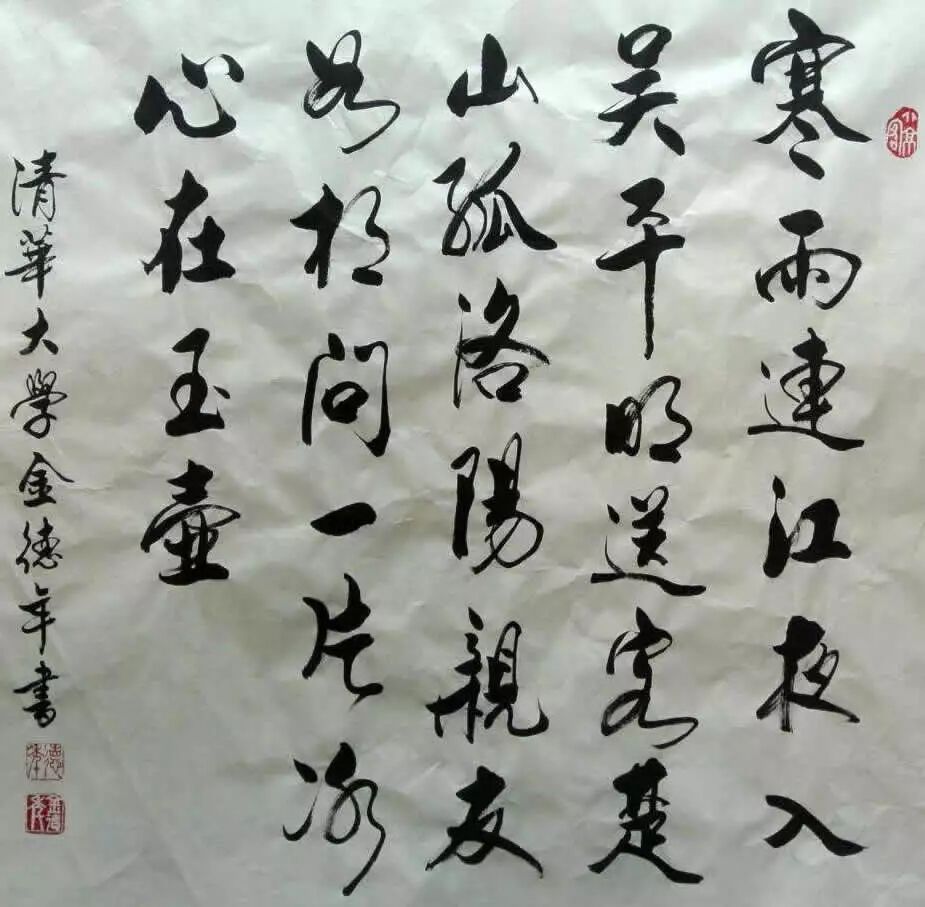 寒雨連江夜入
吴平明送客楚
山孤洛陽親友
如相問一片冰
心在玉壺
清華大學金德年書